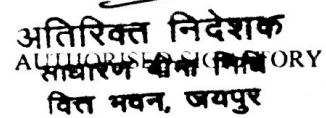 अतिरिक्त निदेशक
AUTHORISED SIGNATORY
साधारण बीमा निधि
वित्त भवन, जयपुर